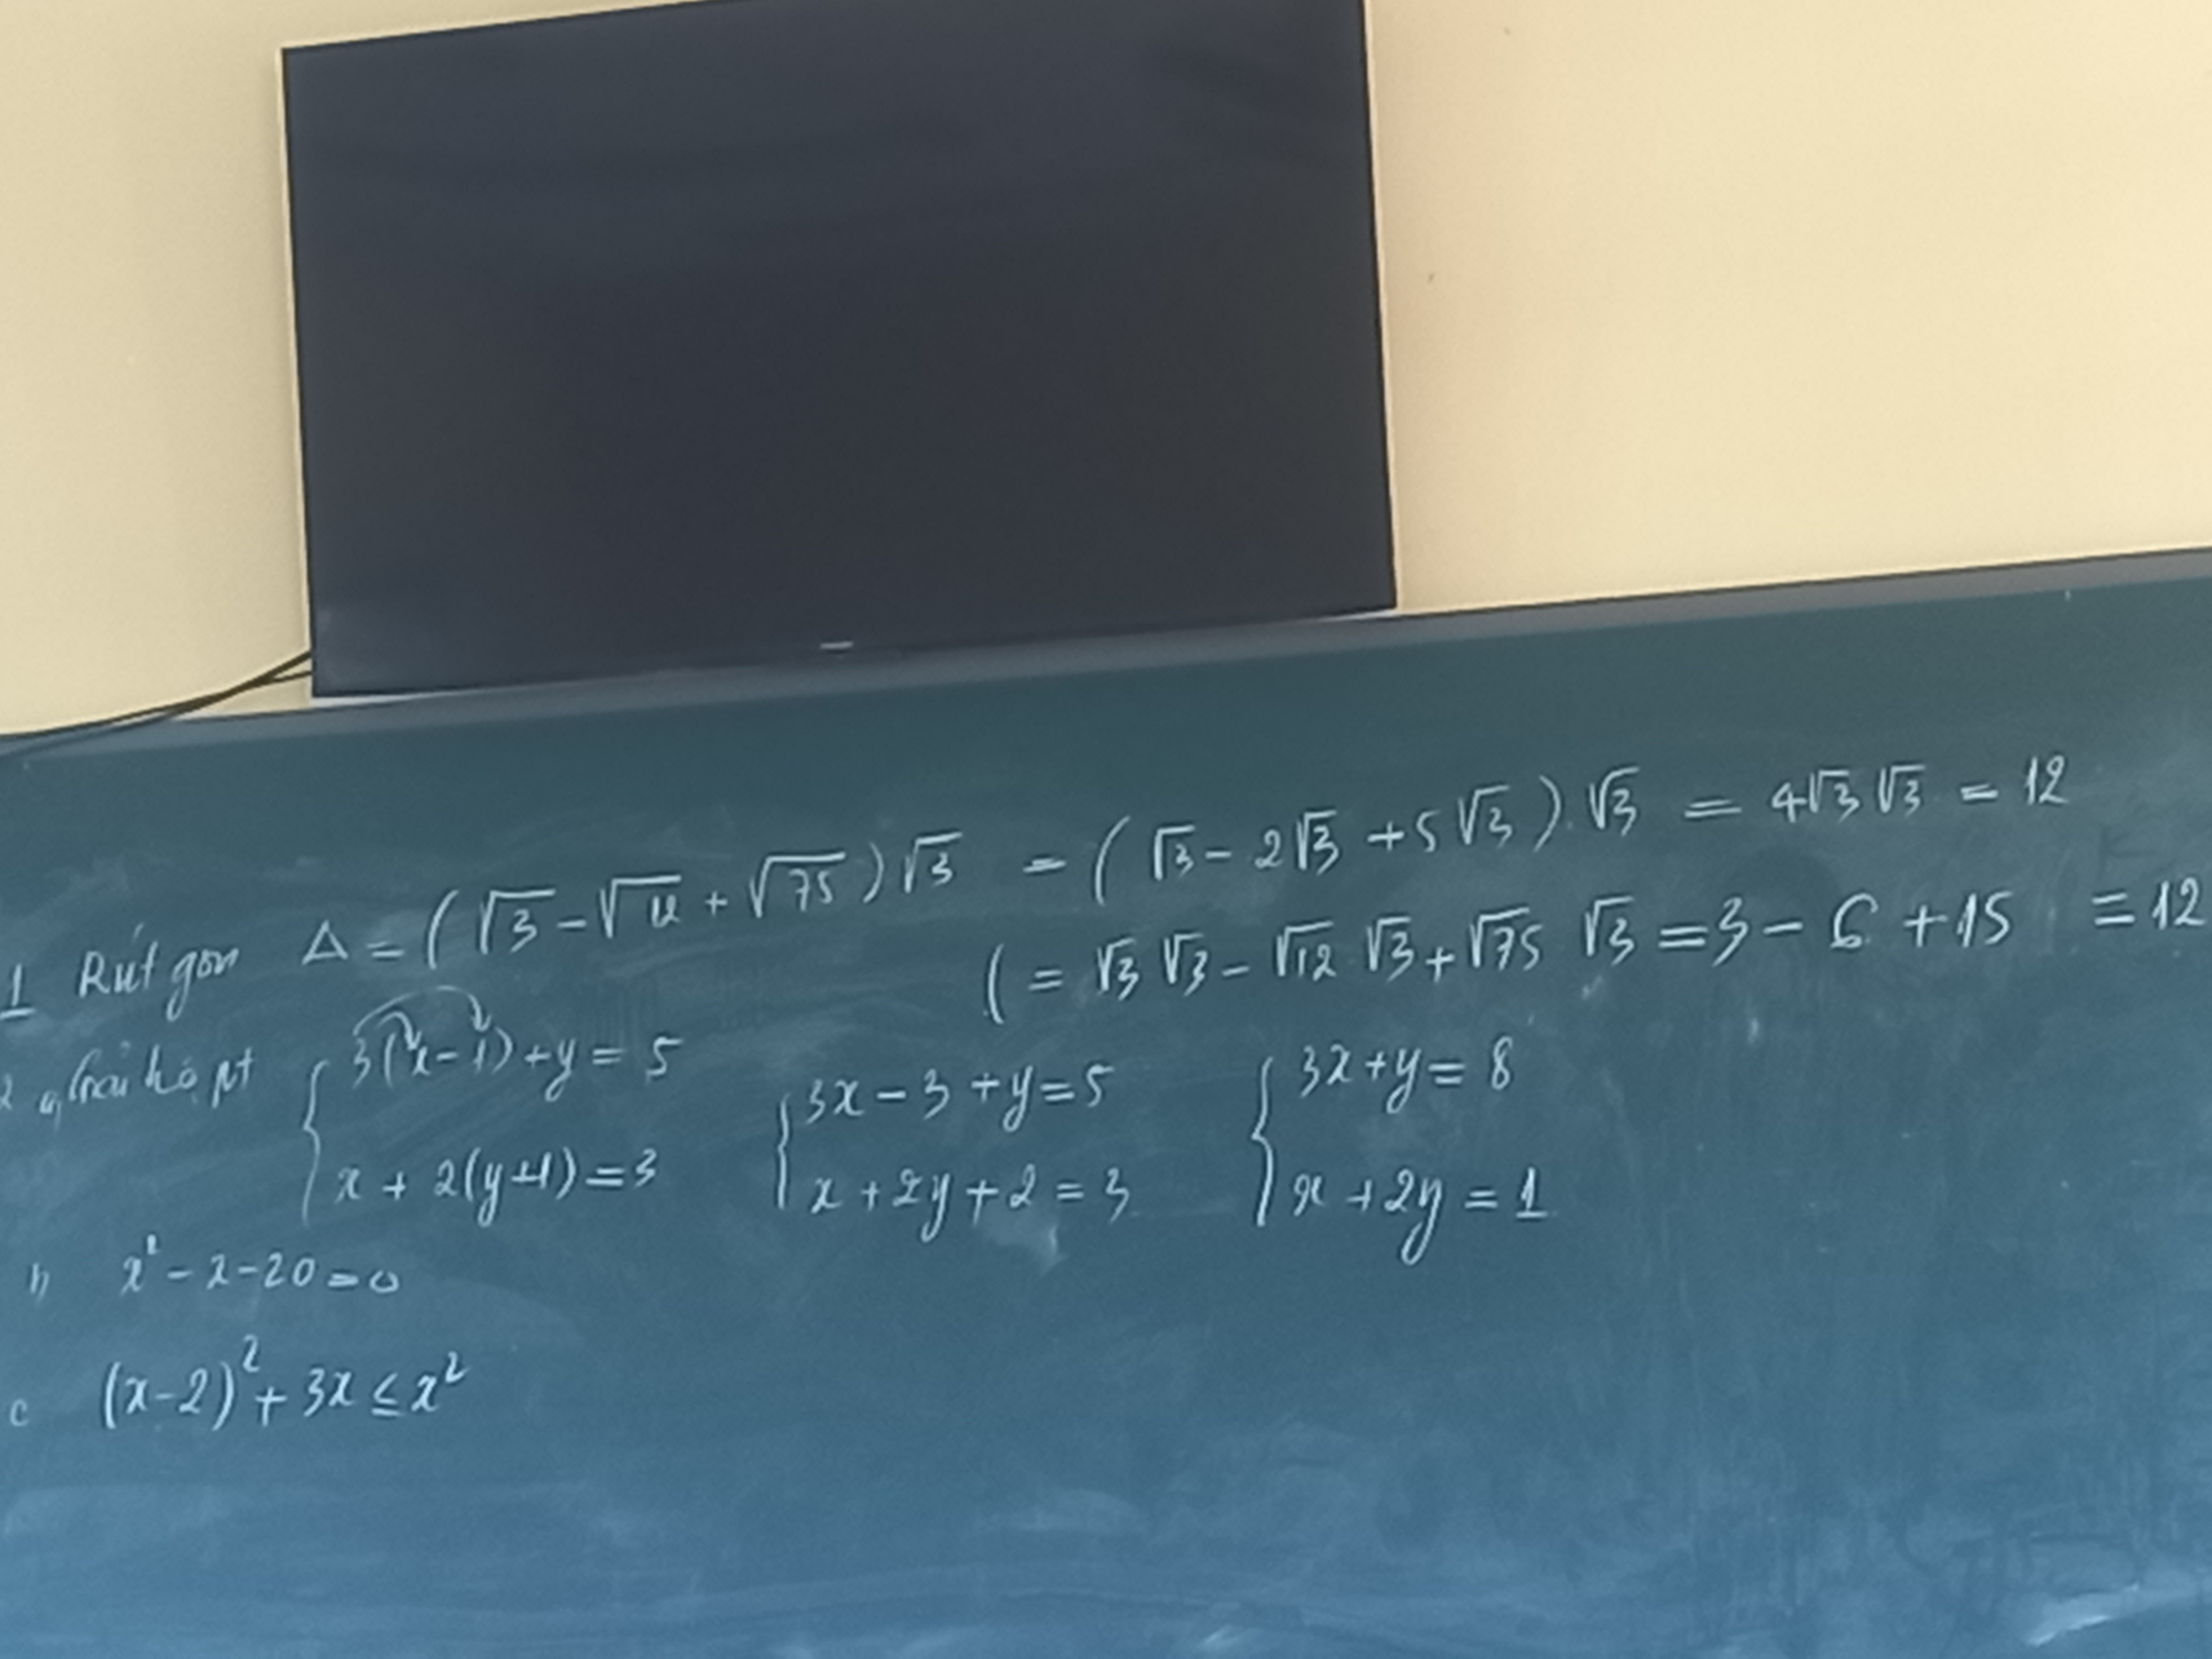 1 Rút gọn A = (√3 - √12 + √75)√3 = (√3 - 2√3 + 5√3).√3 = 4√3 √3 = 12
( = √3 √3 - √12 √3 + √75 √3 = 3 - 6 + 15 = 12
2 a, Giải hệ pt { 3(x-1) + y = 5 { 3x - 3 + y = 5 { 3x + y = 8
x + 2(y+1) = 3 x + 2y + 2 = 3 x + 2y = 1
b, x² - x - 20 = 0
c (x-2)² + 3x ≤ x²